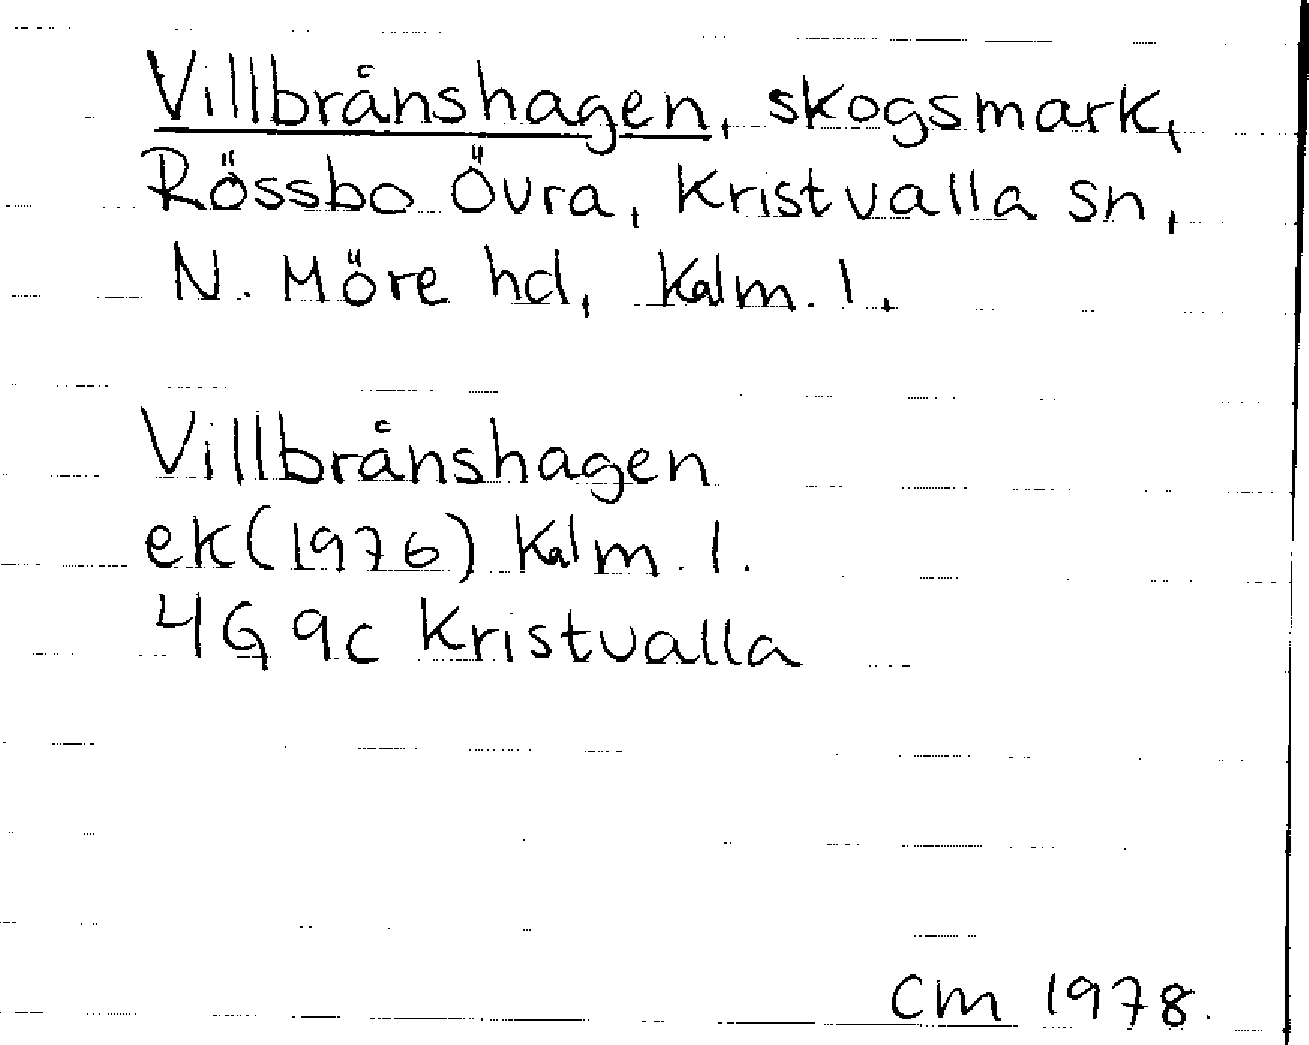 Villbrånshagen, skogsmark,
Rössbo Övra, Kristvalla sn,
N. Möre hd, Kalm. l.
Villbrånshagen
ek (1976) Kalm. l.
4G 9c Kristvalla
CM 1978.